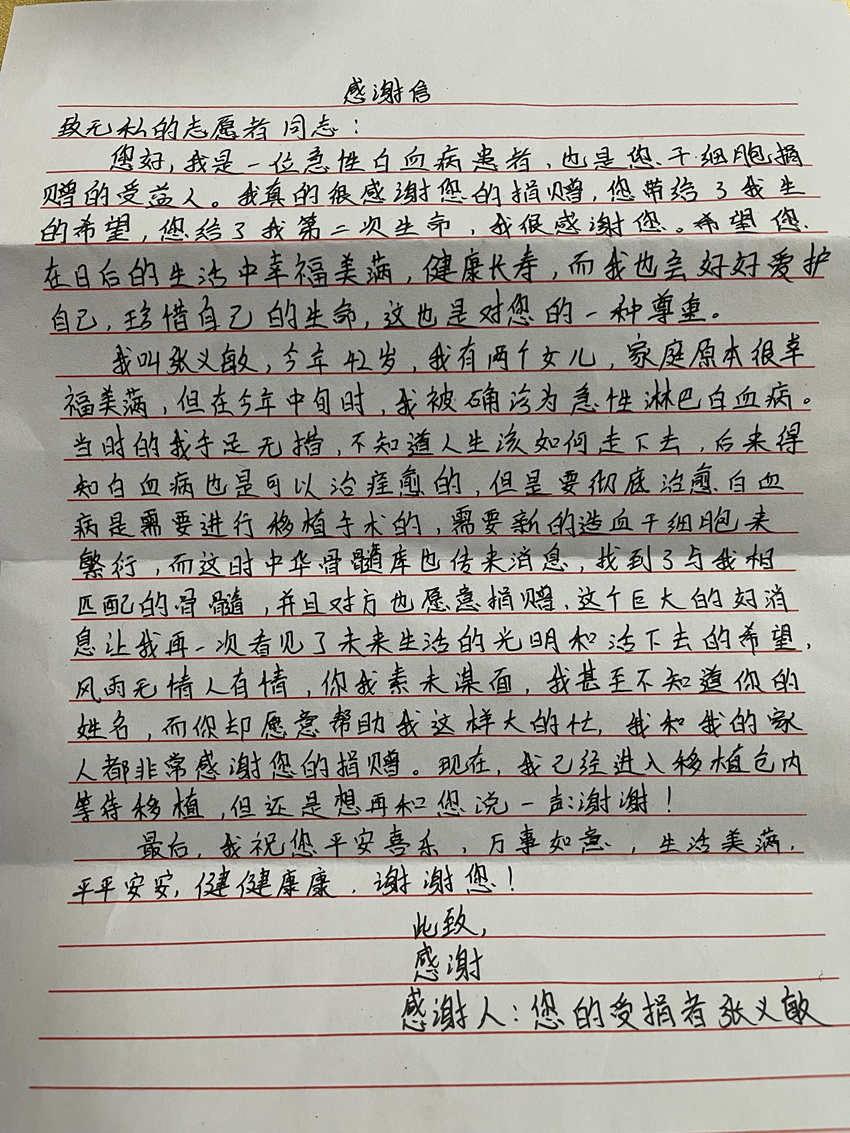 感谢信
致无私的志愿者同志：
您好，我是一位急性白血病患者，也是您干细胞捐
赠的受益人。我真的很感谢您的捐赠，您带给了我生
的希望，您给了我第二次生命，我很感谢您。希望您
在日后的生活中幸福美满，健康长寿，而我也会好好爱护
自己，珍惜自己的生命，这也是对您的一种尊重。
我叫张义敏，今年42岁，我有两个女儿，家庭原本很幸
福美满，但在今年中旬时，我被确诊为急性淋巴白血病。
当时的我手足无措，不知道人生该如何走下去，后来得
知白血病也是可以治痊愈的，但是要彻底治愈白血
病是需要进行移植手术的，需要新的造血干细胞来
繁衍，而这时中华骨髓库也传来消息，找到了与我相
匹配的骨髓，并且对方也愿意捐赠，这个巨大的好消
息让我再一次看见了未来生活的光明和活下去的希望，
风雨无情人有情，你我素未谋面，我甚至不知道你的
姓名，而你却愿意帮助我这样大的忙，我和我的家
人都非常感谢您的捐赠。现在，我已经进入移植仓内
等待移植，但还是想再和您说一声：谢谢！
最后，我祝您平安喜乐，万事如意，生活美满，
平平安安，健健康康，谢谢您！
此致，
感谢
感谢人：您的受捐者张义敏